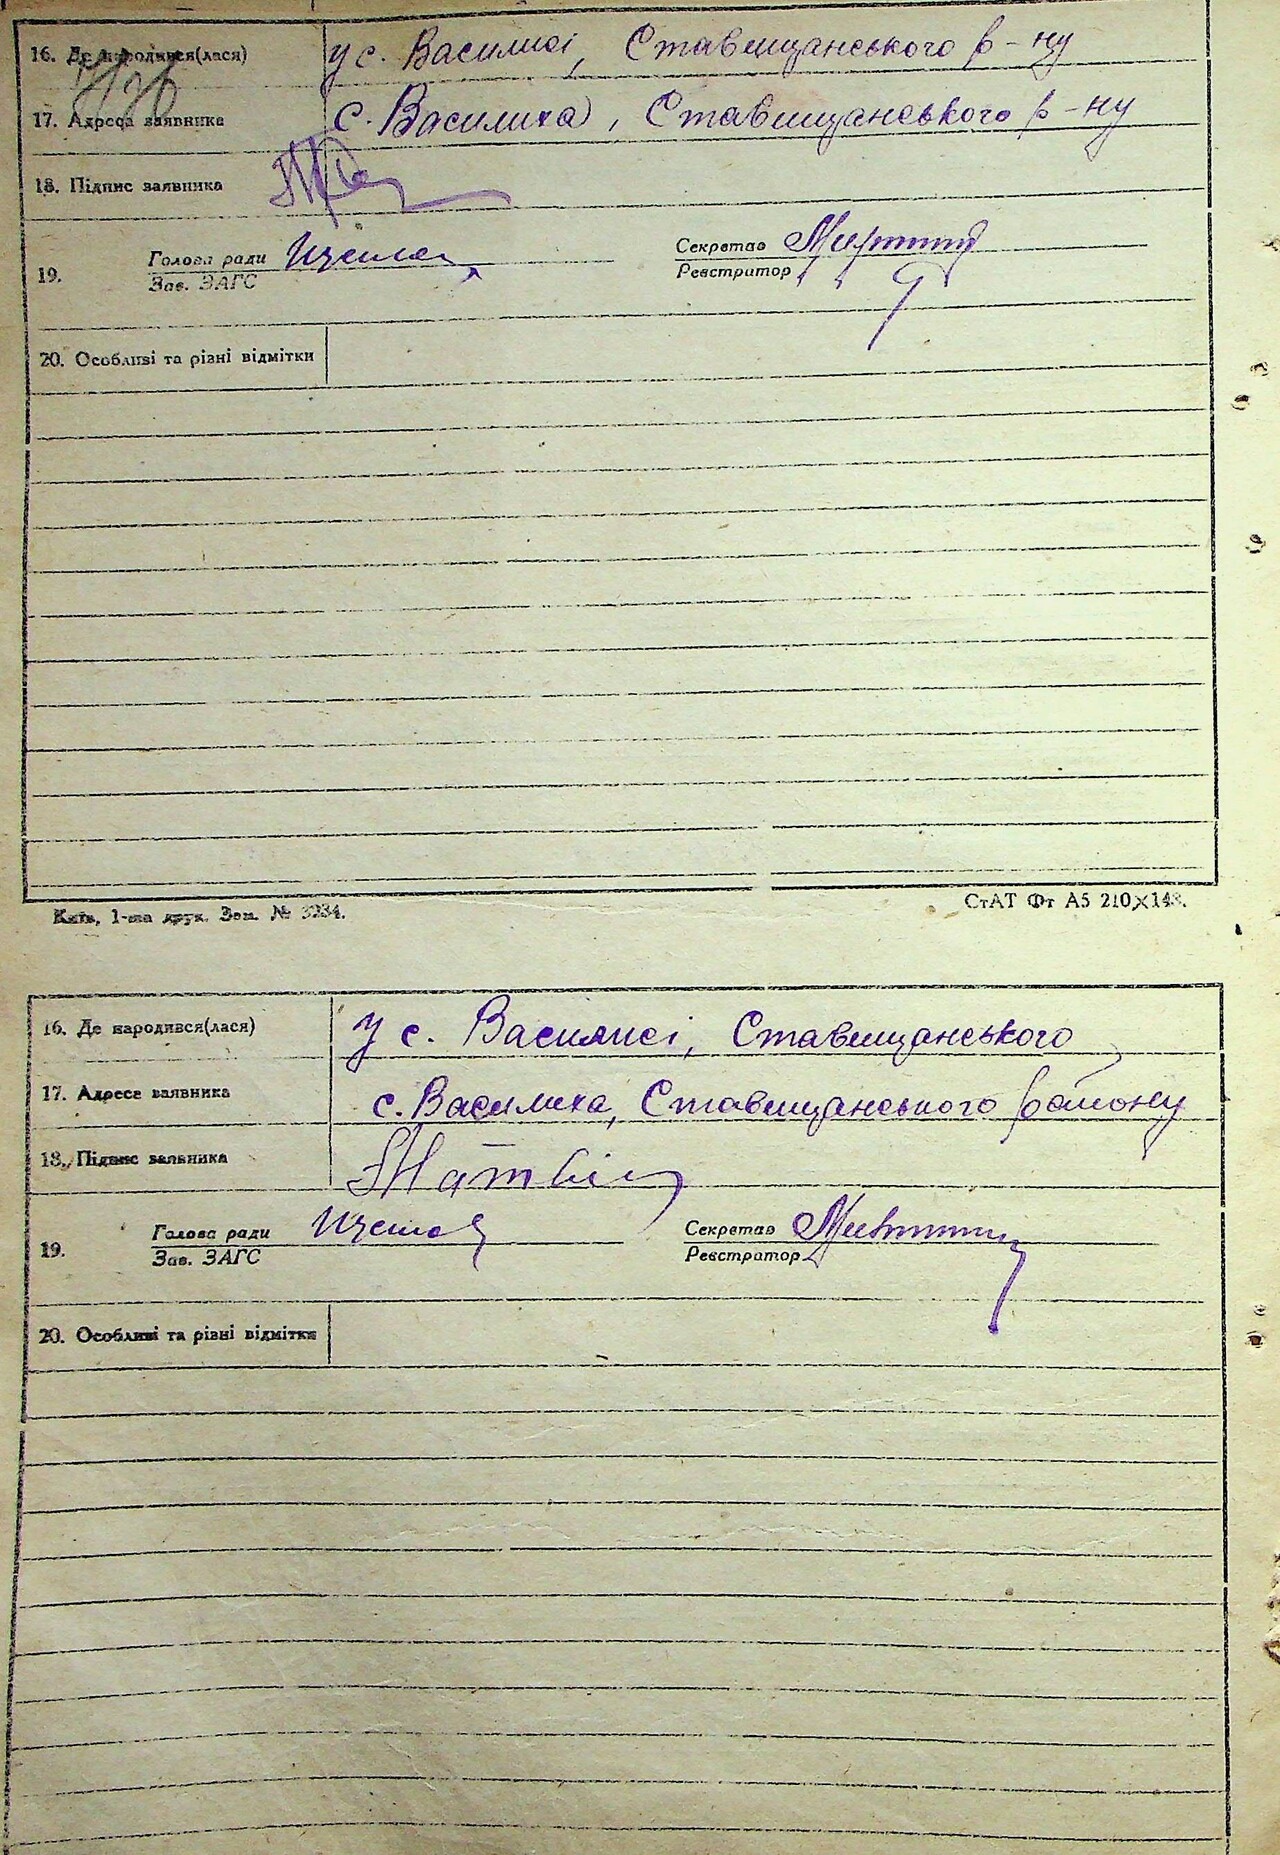 16. Де народився(лася) у с. Василисі, Ставищанського р-ну
17. Адреса заявника с. Василиха, Ставищанського р-ну
18. Підпис заявника
19. Голова ради Секретар
Зав. ЗАГС Реєстратор
20. Особливі та різні відмітки
Київ, 1-ша друк. Зам. № 3234. СтАТ Фт А5 210×148.
16. Де народився(лася) У с. Василисі, Ставищанського
17. Адреса заявника с. Василиха, Ставищанського району
18. Підпис заявника
19. Голова ради Секретар
Зав. ЗАГС Реєстратор
20. Особливі та різні відмітки